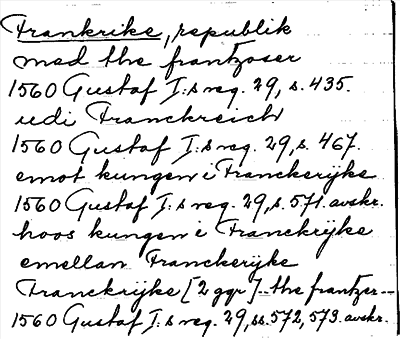 Frankrike, republik
med the frantzoser
1560 Gustaf I:s reg. 29, s. 435.
udi Franckreich
1560 Gustaf I:s reg. 29, s. 467.
emot kungen i Franckerijke
1560 Gustaf I:s reg. 29, s. 571. avskr.
hoos kungen i Franckrijke
emellan Franckerijke
Franckrijke [2 ggr] -- the frantzer --
1560 Gustaf I:s reg. 29, ss. 572, 573. avskr.